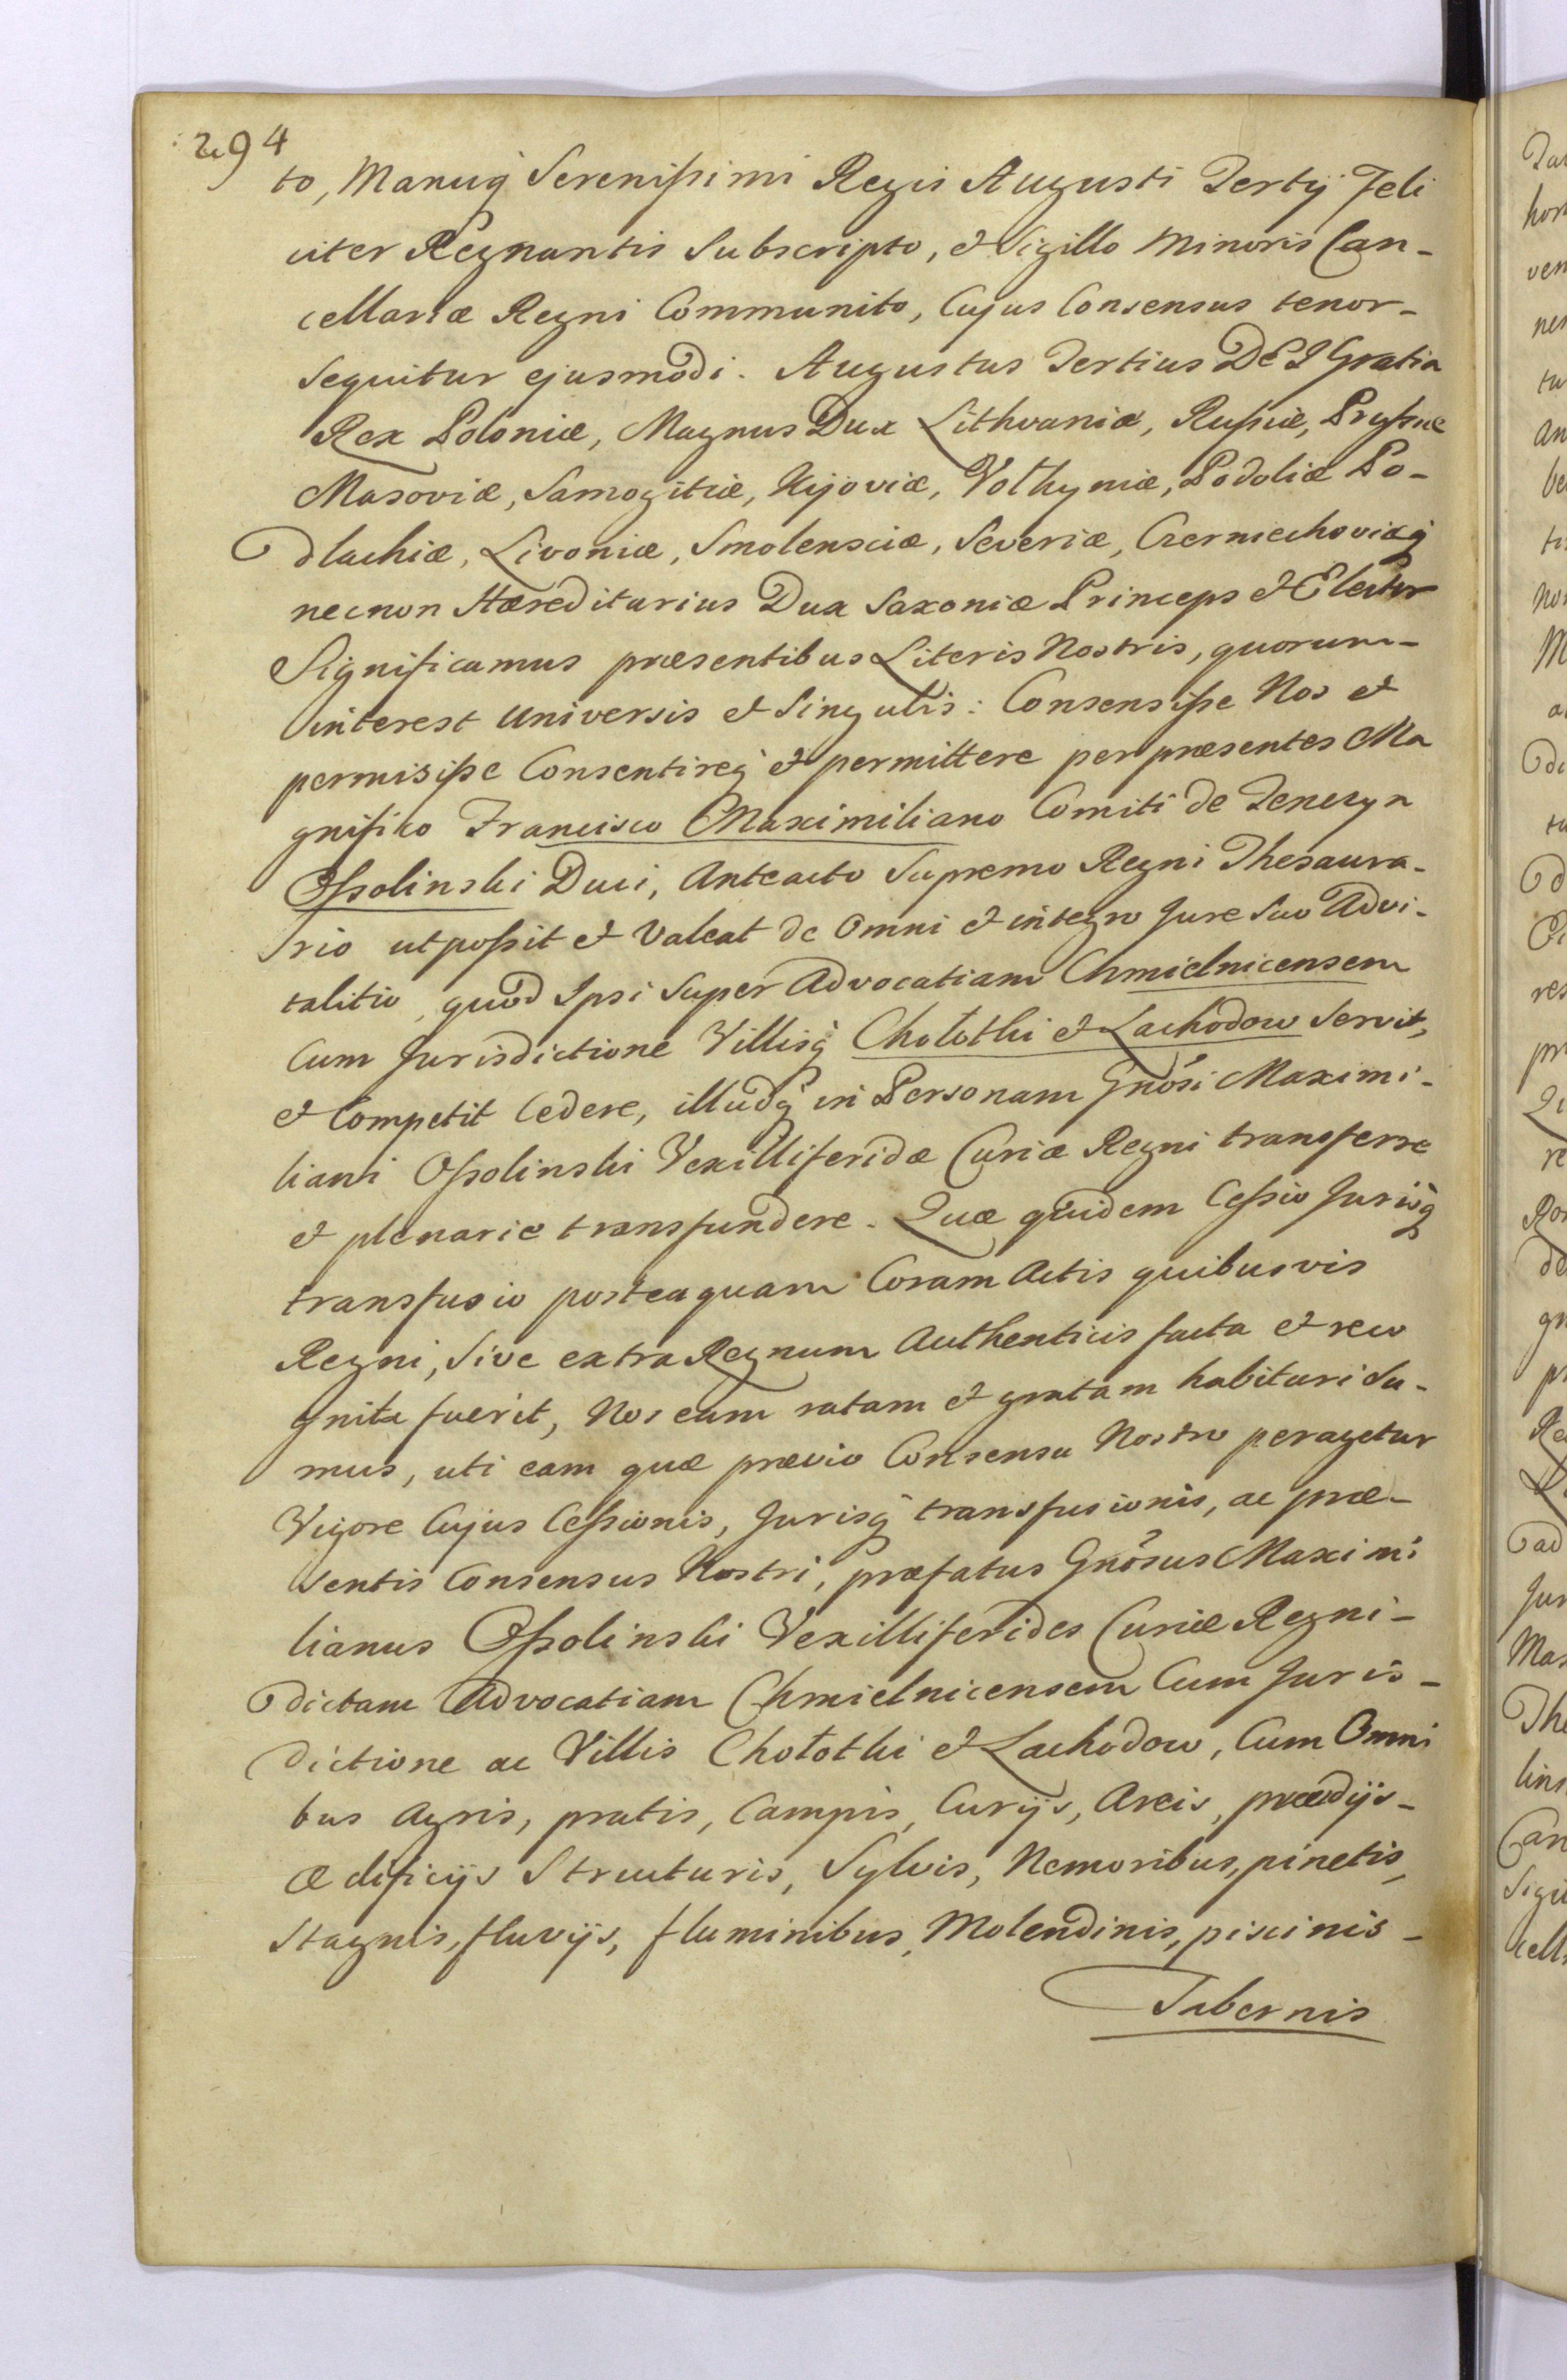 294
to, Manuq̃ Serenissimi Regis Augusti Tertij Feli
citer Regnantis Subscripto, et Sigillo Minoris Can-
cellariæ Regni Communito, Cujus Consensus tenor-
sequitur ejusmodi. Augustus Tertius DEI Gratia
Rex Poloniæ, Magnus Dux Lithvaniæ, Russiæ, Pryssiæ
Masoviæ, Samogitiæ, Kijoviæ, Volhyniæ, Podoliæ Po-
dlachiæ, Livoniæ, Smolensciæ, Severiæ, Czerniechoviæq̃
necnon Hæreditarius Dux Saxoniæ Princeps et Elector
Significamus præsentibus Literis Nostris, quorum-
interest Universis et Singulis: Consensisse Nos et
permisisse Consentireq̃ et permittere per præsentes Ma
gnifico Francisco Maximiliano Comiti de Tenczyn
Ossolinski Duci, Anteacto Supremo Regni Thesaura-
rio ut possit et Valeat de Omni et integro Jure Suo Advi-
talitio, quod Ipsi Super Advocatiam Chmielnicensem
Cum Jurisdictione Villisq̃ Chołothi et Lachodow Servit,
et Competit Cedere, illudq̃ in Personam Gnósi Maximi-
liani Ossolinski Vexilliferidæ Curiæ Regni transferre
et plenarie transfundere. Quæ quidem Cessio Jurisq̃
transfusio posteaquam Coram Actis quibusvis
Regni, Sive extra Regnum Authenticis facta et reco
gnita fuerit, Nos eam ratam et gratam habituri Su-
mus, uti eam quæ prævio Consensu Nostro peragetur
Vigore Cujus Cessionis, Jurisq̃ transfusionis, ac præ-
sentis Consensus Nostri, præfatus Gnósus Maximi
lianus Ossolinski Vexilliferides Curiæ Regni-
dictam Advocatiam Chmielnicensem Cum Juris-
dictione ac Villis Chołothi et Lachodow, Cum Omni
bus Agris, pratis, Campis, Curijs, Areis, prædijs-
ædificijs Structuris, Sylvis, Nemoribus, pinetis,
Stagnis, fluvijs, fluminibus, Molendinis, piscinis-
Tabernis